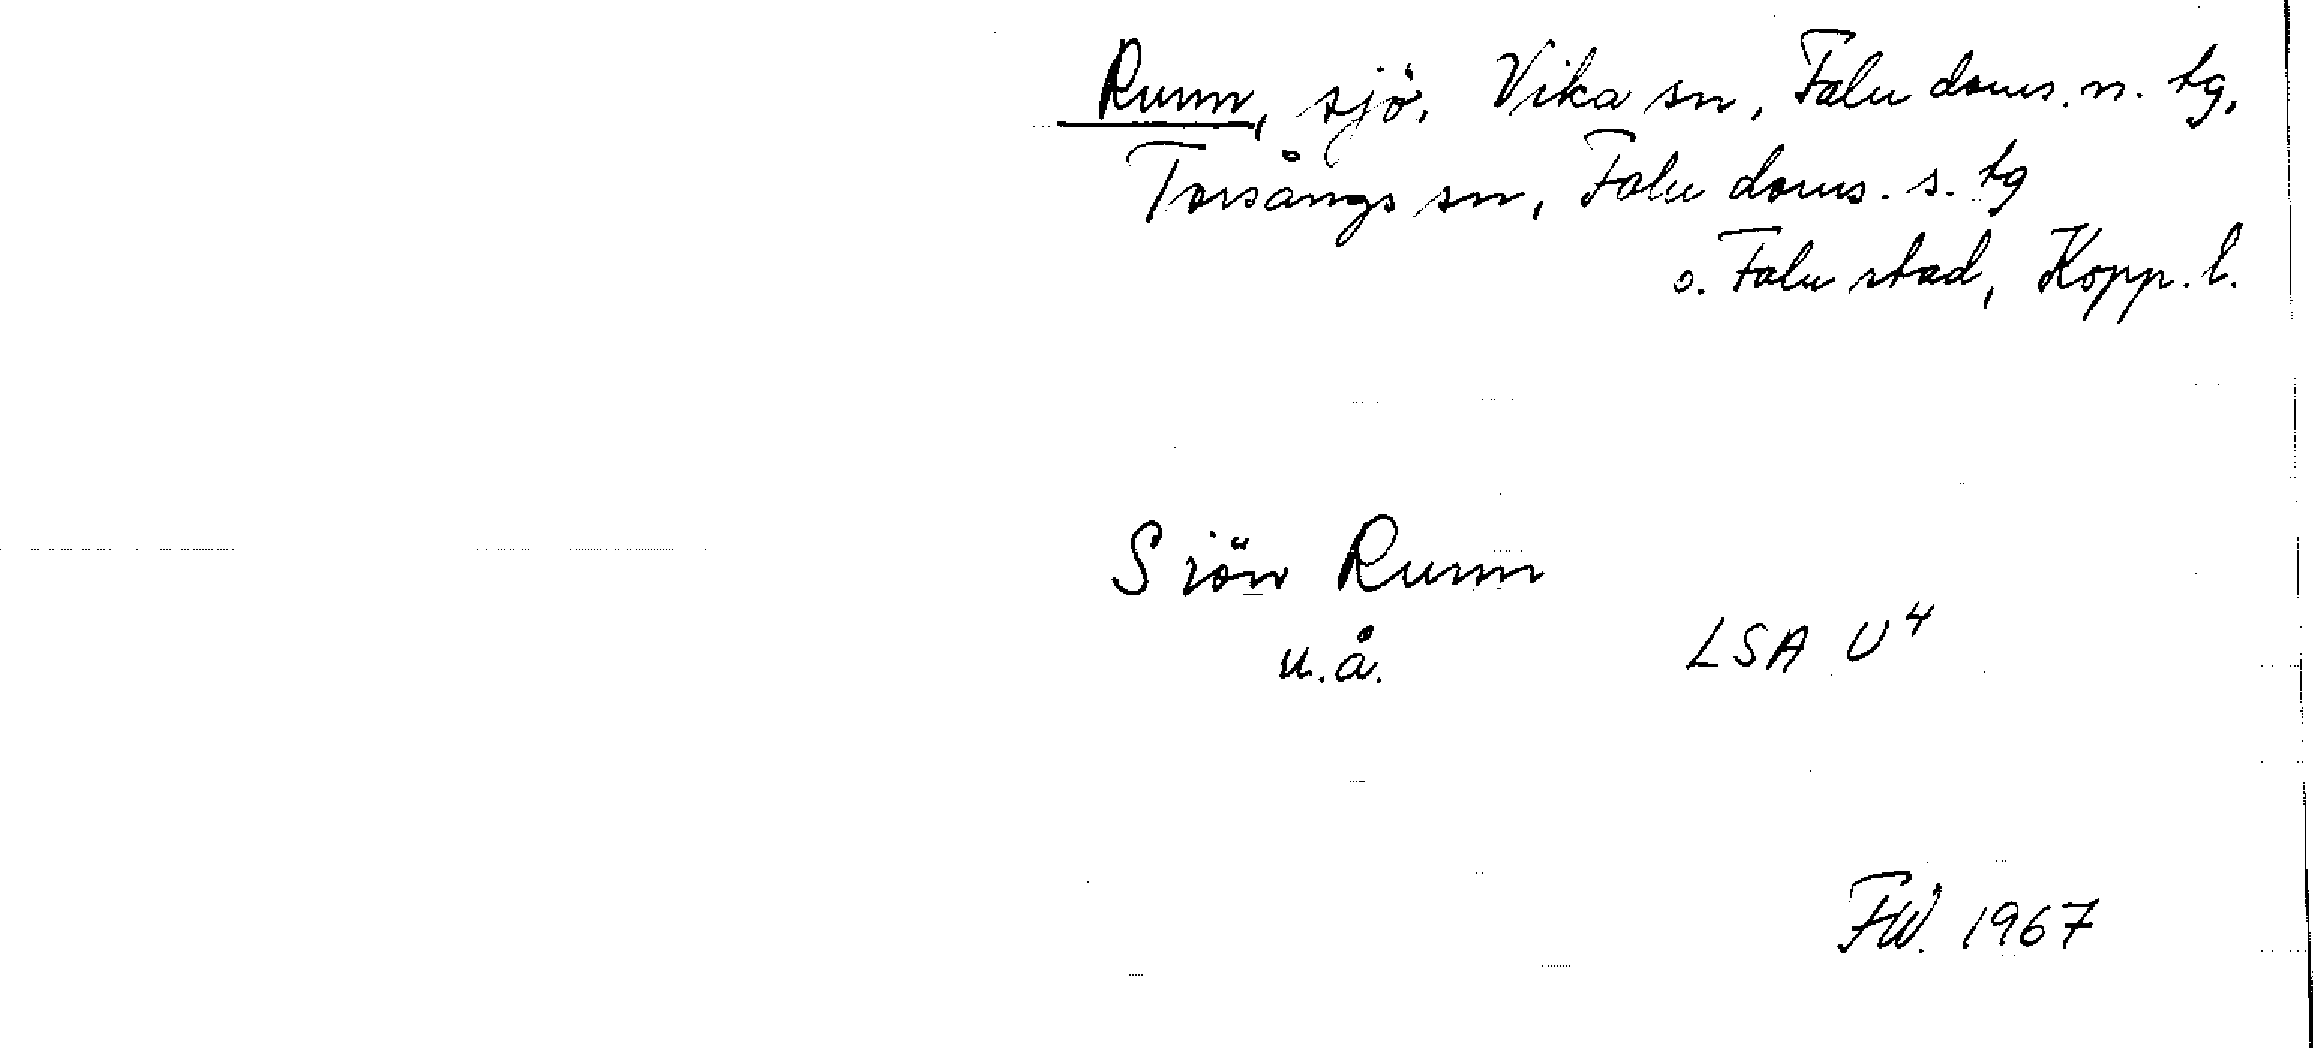 Runn, sjö, Vika sn, Falu doms. n. tg,
Torsångs sn, Falu doms. s. tg
o. Falu stad, Kopp. l.
Siön Runn
u.å. LSA U⁴
FW. 1967